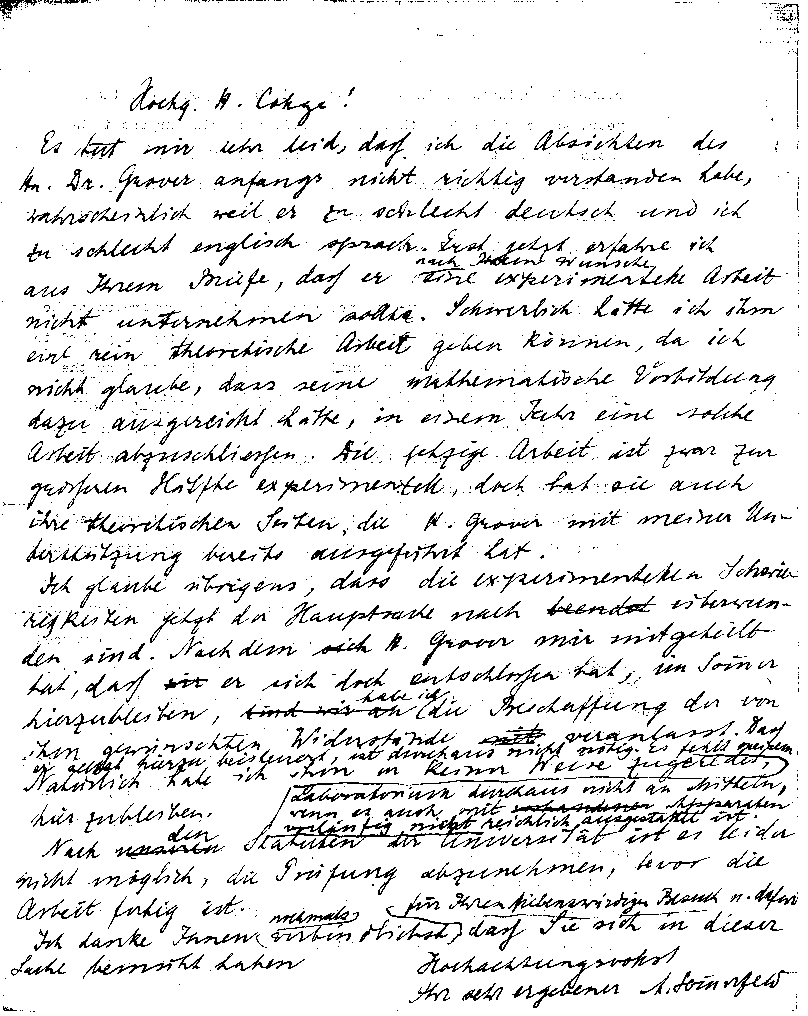 Hochg. H. College!
Es tut mir sehr leid, daß ich die Absichten des
Hn. Dr. Grover anfangs nicht richtig verstanden habe,
wahrscheinlich weil er zu schlecht deutsch und ich
zu schlecht englisch sprach. Erst jetzt erfahre ich
nach Ihrem Wunsche
aus Ihrem Briefe, daß er eine experimentelle Arbeit
nicht unternehmen sollte. Schwerlich hätte ich ihm
eine rein theoretische Arbeit geben können, da ich
nicht glaube, dass seine mathematische Vorbildung
dazu ausgereicht hätte, in einem Jahr eine solche
Arbeit abzuschliessen. Die jetzige Arbeit ist zwar zur
größeren Hälfte experimentell, doch hat sie auch
ihre theoretischen Seiten, die H. Grover mit meiner Un-
terstützung bereits ausgeführt hat.
Ich glaube übrigens, dass die experimentellen Schwie-
rigkeiten jetzt der Hauptsache nach beendet überwun-
den sind. Nachdem sich H. Grover mir mitgeteilt
hat, daß wir er sich doch entschlossen hat, im Som̄er
habe ich
hierzubleiben, sind wir an die Beschaffung der von
ihm gewünschten Widerstände mit veranlasst. Daß
er selbst hierzu beisteuert, ist durchaus nicht nötig. Es fehlt meinem
Natürlich habe ich ihm in keiner Weise zugeredet,
Laboratorium durchaus nicht an Mitteln,
hier zubleiben.
wenn es auch mit vorhandenen Apparaten
vorläufig nicht reichlich ausgestattet ist.
den
Nach unseren Statuten der Universität ist es leider
nicht möglich, die Prüfung abzunehmen, bevor die
Arbeit fertig ist.
für Ihren liebenswürdigen Besuch u. dafür
nochmals
Ich danke Ihnen verbindlichst daß Sie sich in dieser
Sache bemüht haben
Hochachtungsvollst
Ihr sehr ergebener A. Som̄erfeld